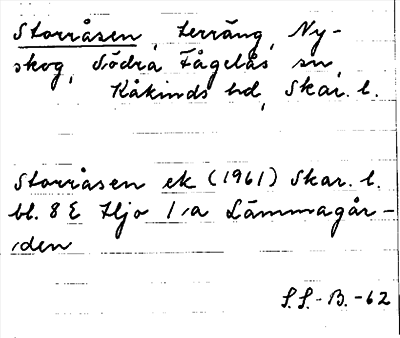 Storråsen, terräng, Ny-
skog, Södra Fågelås sn,
Kåkinds hd, Skar. l.
Storråsen ek (1961) Skar. l.
bl. 8 E Hjo 1/a Lämmagår-
den
S.S.-B.-62